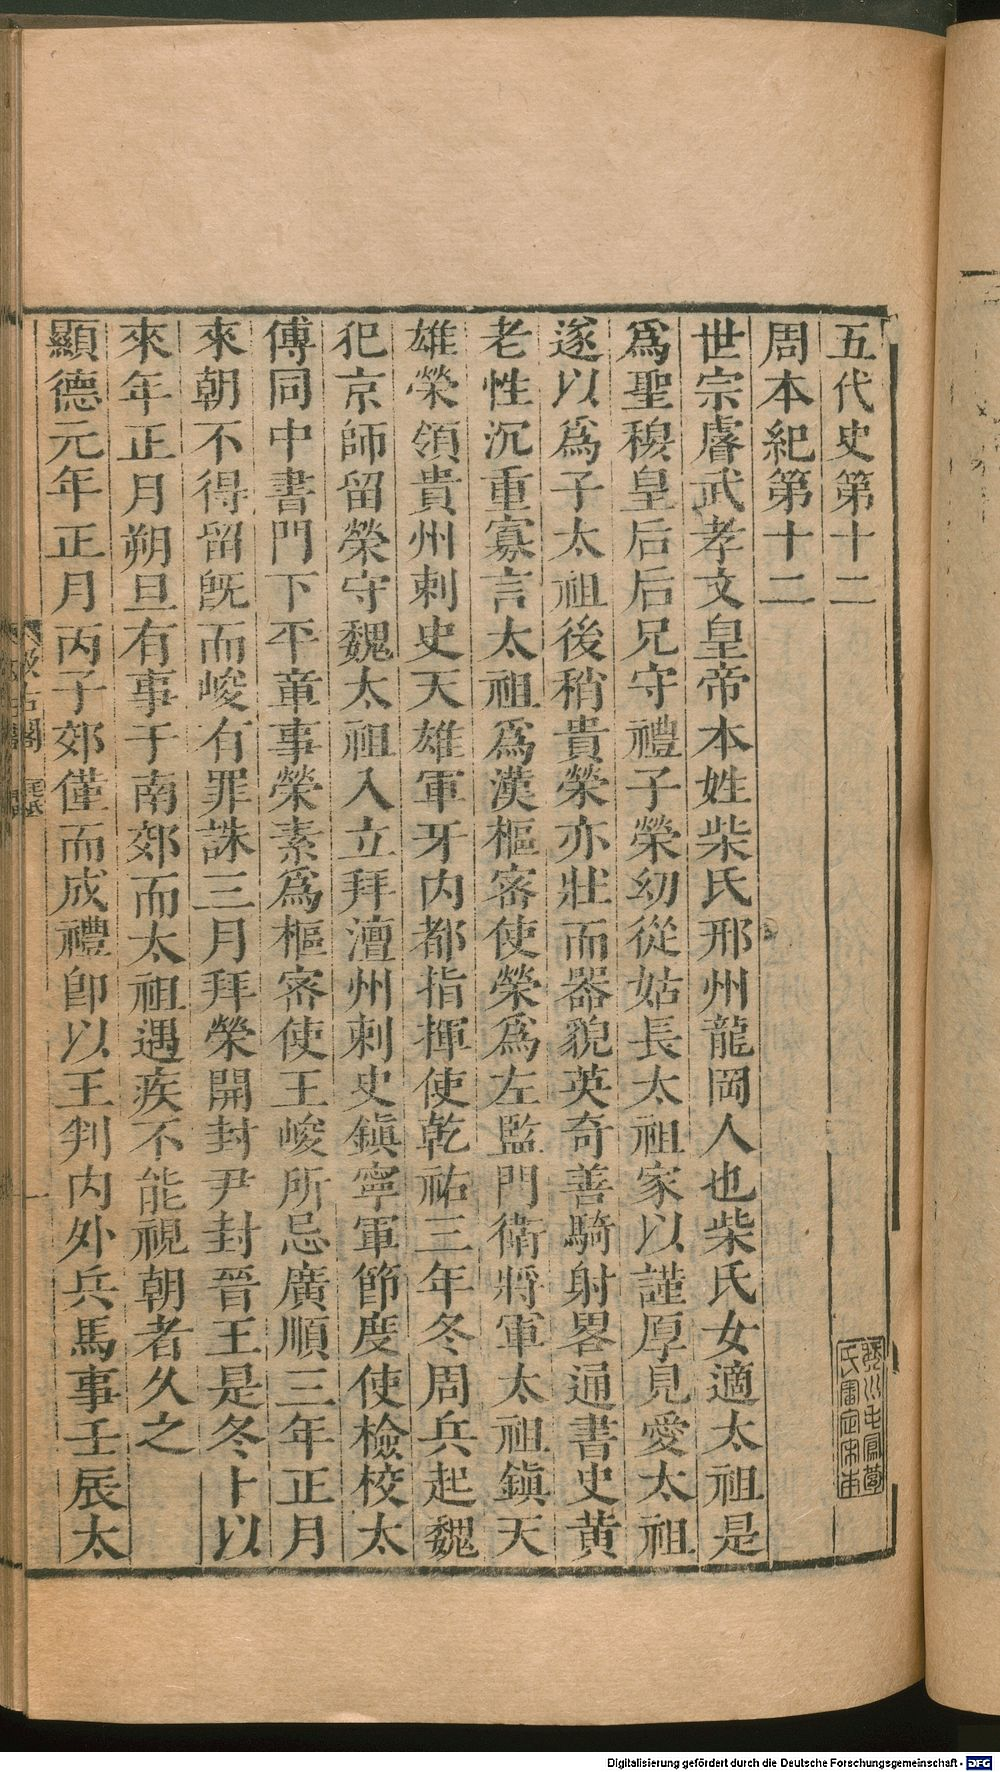 五代史第十二
周本紀第十二
世宗睿武孝文皇帝本姓柴氏邢州龍岡人也柴氏女適太祖是
爲聖穆皇后后兄守禮子榮幼從姑長太祖家以謹厚見愛太祖
遂以爲子太祖後稍貴榮亦壯而器貌英奇善騎射畧通書史黃
老性沉重寡言太祖爲漢樞密使榮爲左監門衛將軍太祖鎮天
雄榮領貴州刺史天雄軍牙內都指揮使乾祐三年冬周兵起魏
犯京師留榮守魏太祖入立拜澶州刺史鎮寧軍節度使檢校太
傅同中書門下平章事榮素爲樞密使王峻所忌廣順三年正月
來朝不得留旣而峻有罪誅三月拜榮開封尹封晉王是冬卜以
來年正月朔旦有事于南郊而太祖遇疾不能視朝者久之
顯德元年正月丙子郊僅而成禮卽以王判內外兵馬事壬辰太
汲古閣
一
Digitalisierung gefördert durch die Deutsche Forschungsgemeinschaft - DFG